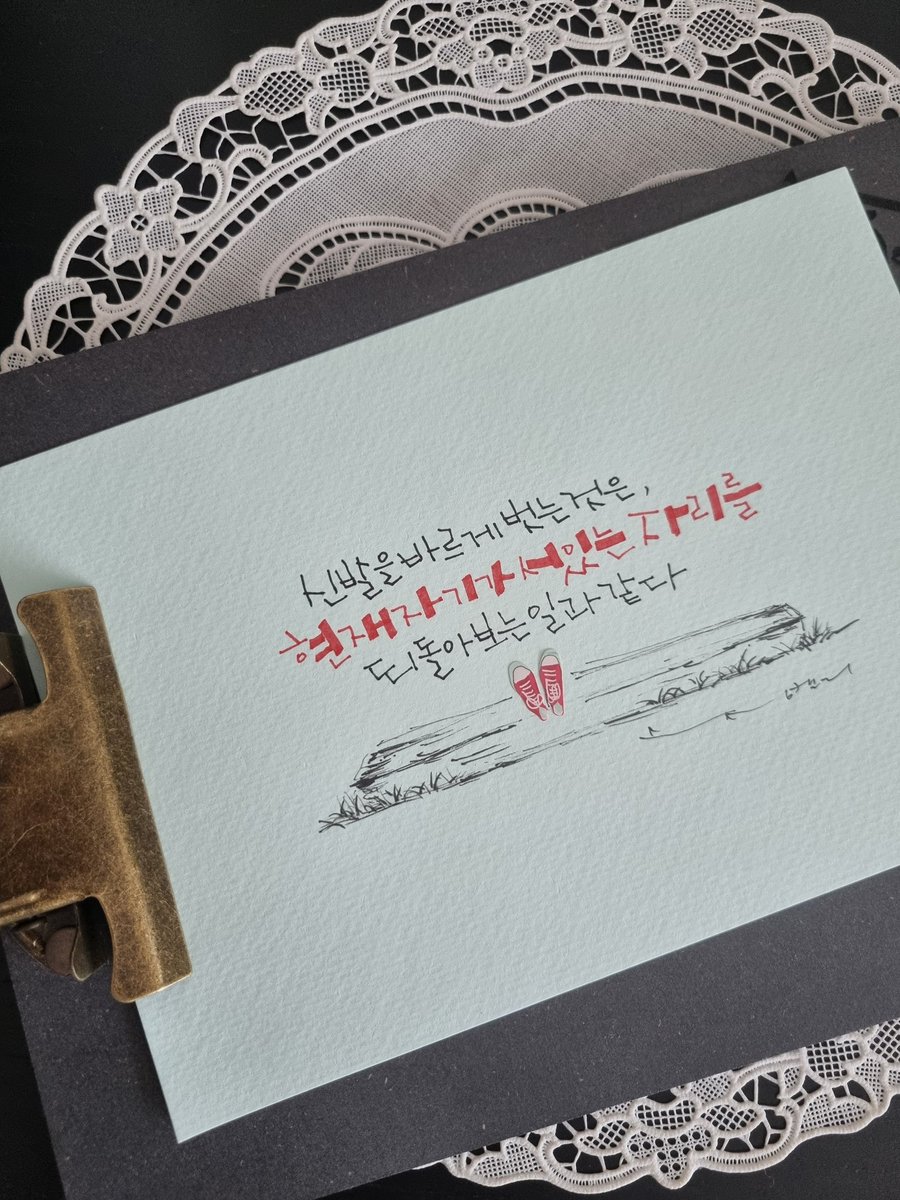 신발을 바르게 벗는 것은,
현재 자기가 서 있는 자리를
되돌아보는 일과 같다